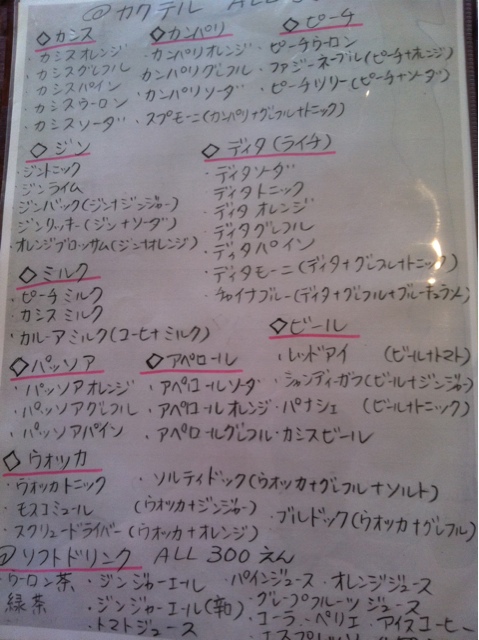 @カクテル ALL
◇カシス
・カシスオレンジ
・カシスグレフル
・カシスパイン
・カシスウーロン
・カシスソーダ
◇カンパリ
・カンパリオレンジ
カンパリグレフル
・カンパリソーダ
・スプモーニ(カンパリ+グレフル+トニック)
◇ピーチ
・ピーチウーロン
・ファジーネーブル(ピーチ+オレンジ)
・ピーチツリー(ピーチ+ソーダ)
◇ジン
・ジントニック
ジンライム
ジンバック(ジン+ジンジャー)
ジンリッキー(ジン+ソーダ)
・オレンジブロッサム(ジン+オレンジ)
◇ディタ(ライチ)
・ディタソーダ
・ディタトニック
・ディタオレンジ
・ディタグレフル
・ディタパイン
・ディタモーニ(ディタ+グレフル+トニック)
・チャイナブルー(ディタ+グレフル+ブルーキュラソー)
◇ミルク
・ピーチミルク
・カシスミルク
・カルーアミルク(コーヒー+ミルク)
◇ビール
・レッドアイ (ビール+トマト)
・シャンディーガフ(ビール+ジンジャー)
・パナシェ (ビール+トニック)
・カシスビール
◇パッソア
・パッソアオレンジ
・パッソアグレフル
・パッソアパイン
◇アペロール
・アペロールソーダ
・アペロールオレンジ
・アペロールグレフル
◇ウオッカ
・ウオッカトニック
・モスコミュール (ウオッカ+ジンジャー)
・スクリュードライバー(ウオッカ+オレンジ)
・ソルティドック(ウオッカ+グレフル+ソルト)
・ブルドック(ウオッカ+グレフル)
@ソフトドリンク ALL 300えん
・ウーロン茶
緑茶
・ジンジャーエール
・ジンジャーエール(辛)
・トマトジュース
・パインジュース
・オレンジジュース
・グレープフルーツジュース
・コーラ
・ペリエ
・アイスコーヒー